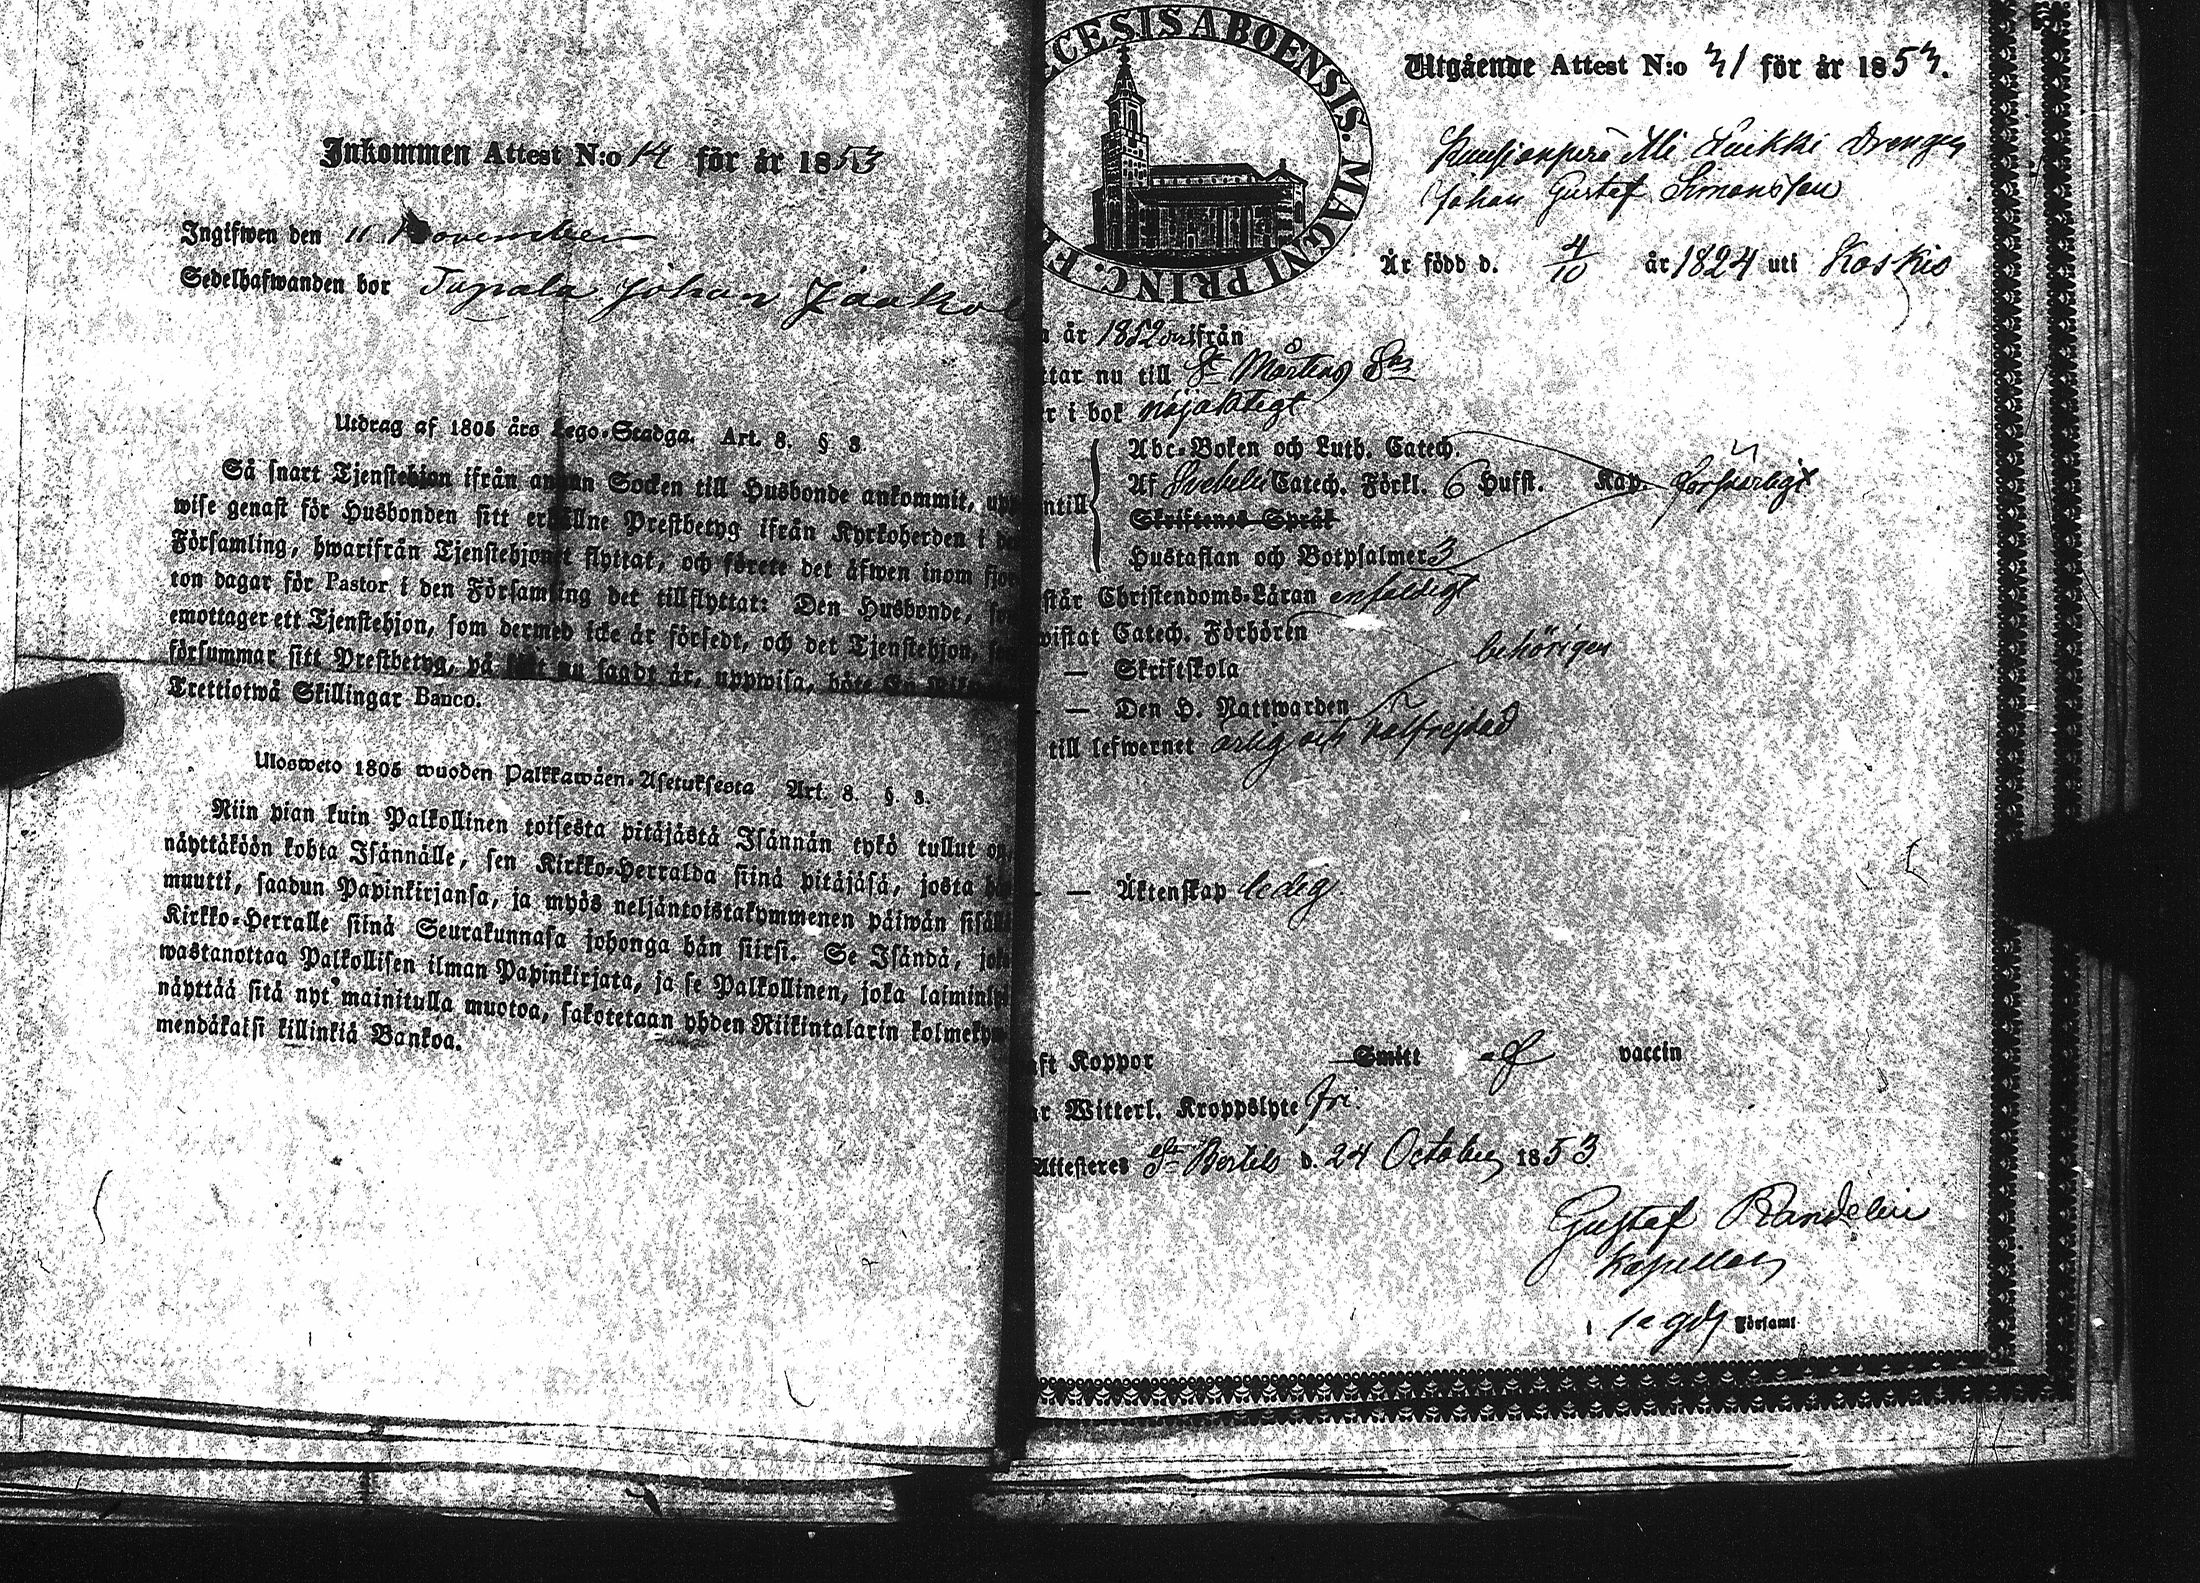 Inkommen Attest N:o 14 för år 1853
Ingifwen den 11 November
Sedelhafwanden bor Tupala Johan Jaako
Utdrag af 1805 års Lego-Stadga. Art. 8. § 3.
Så snart Tjenstehjon ifrån annan Socken till Husbonde ankommit, upp
wise genast för Husbonden sitt erhållne Prestbetyg ifrån Kyrkoherden i
Församling, hwarifrån Tjenstehjonet flyttat, och förete det äfwen inom fjor
ton dagar för Pastor i den Församling det tillflyttat: Den Husbonde,
emottager ett Tjenstehjon, som dermed icke är försedt, och det Tjenstehjon,
försummar sitt Prestbetyg, på sätt nu sagdt är, uppwisa, böte En
Trettiotwå Skillingar Banco.
Ulosweto 1805 wuoden Palkkawäen-Asetuksesta Art. 8. §. 3.
Niin pian kuin Palkollinen toisesta pitäjästä Isännän tykö tullut on,
näyttäköön kohta Isännälle, sen Kirkko-Herralda siinä pitäjäsä, josta
muutti, saadun Papinkirjansa, ja myös neljäntoistakymmenen päiwän sisäll
Kirkko-Herralle siinä Seurakunnasa johonga hän siirsi. Se Isändä,
wastanottaa Palkollisen ilman Papinkirjata, ja se Palkollinen, joka laiminly
näyttää sitä nyt mainitulla muotoa, sakotetaan yhden Riikintalarin kolmekym
mendäkaksi killinkiä Bankoa.
ECESIS ABOENSIS. MAGNI PRINC. F
Utgående Attest N:o 31 för år 1853.
Drengen
Johan Gustaf Simonsson
Är född d. 4/10 år 1824 uti Koskis
år 1852 ifrån
tar nu till St Mårtens
r i bok nöjaktigt
Abc-Boken och Luth. Catech.
ntill Af Svebelii Catech. Förkl. 6 Hufst. Kap. försvarligt
Skriftenes Språk
Hustaflan och Botpsalmer 3
står Christendoms-Läran enfaldigt
wistat Catech. Förhören
— Skriftskola behörigen
— Den H. Nattwarden
till lefwernet ärlig och välfrejdad
— — Äktenskap ledig
ft Koppor Smitt af vaccin
ar Witterl. Kroppslyte fri.
Attesteres St Bertils d. 24 October 1853.
Gustaf Randelin
Kapellan
i Församl